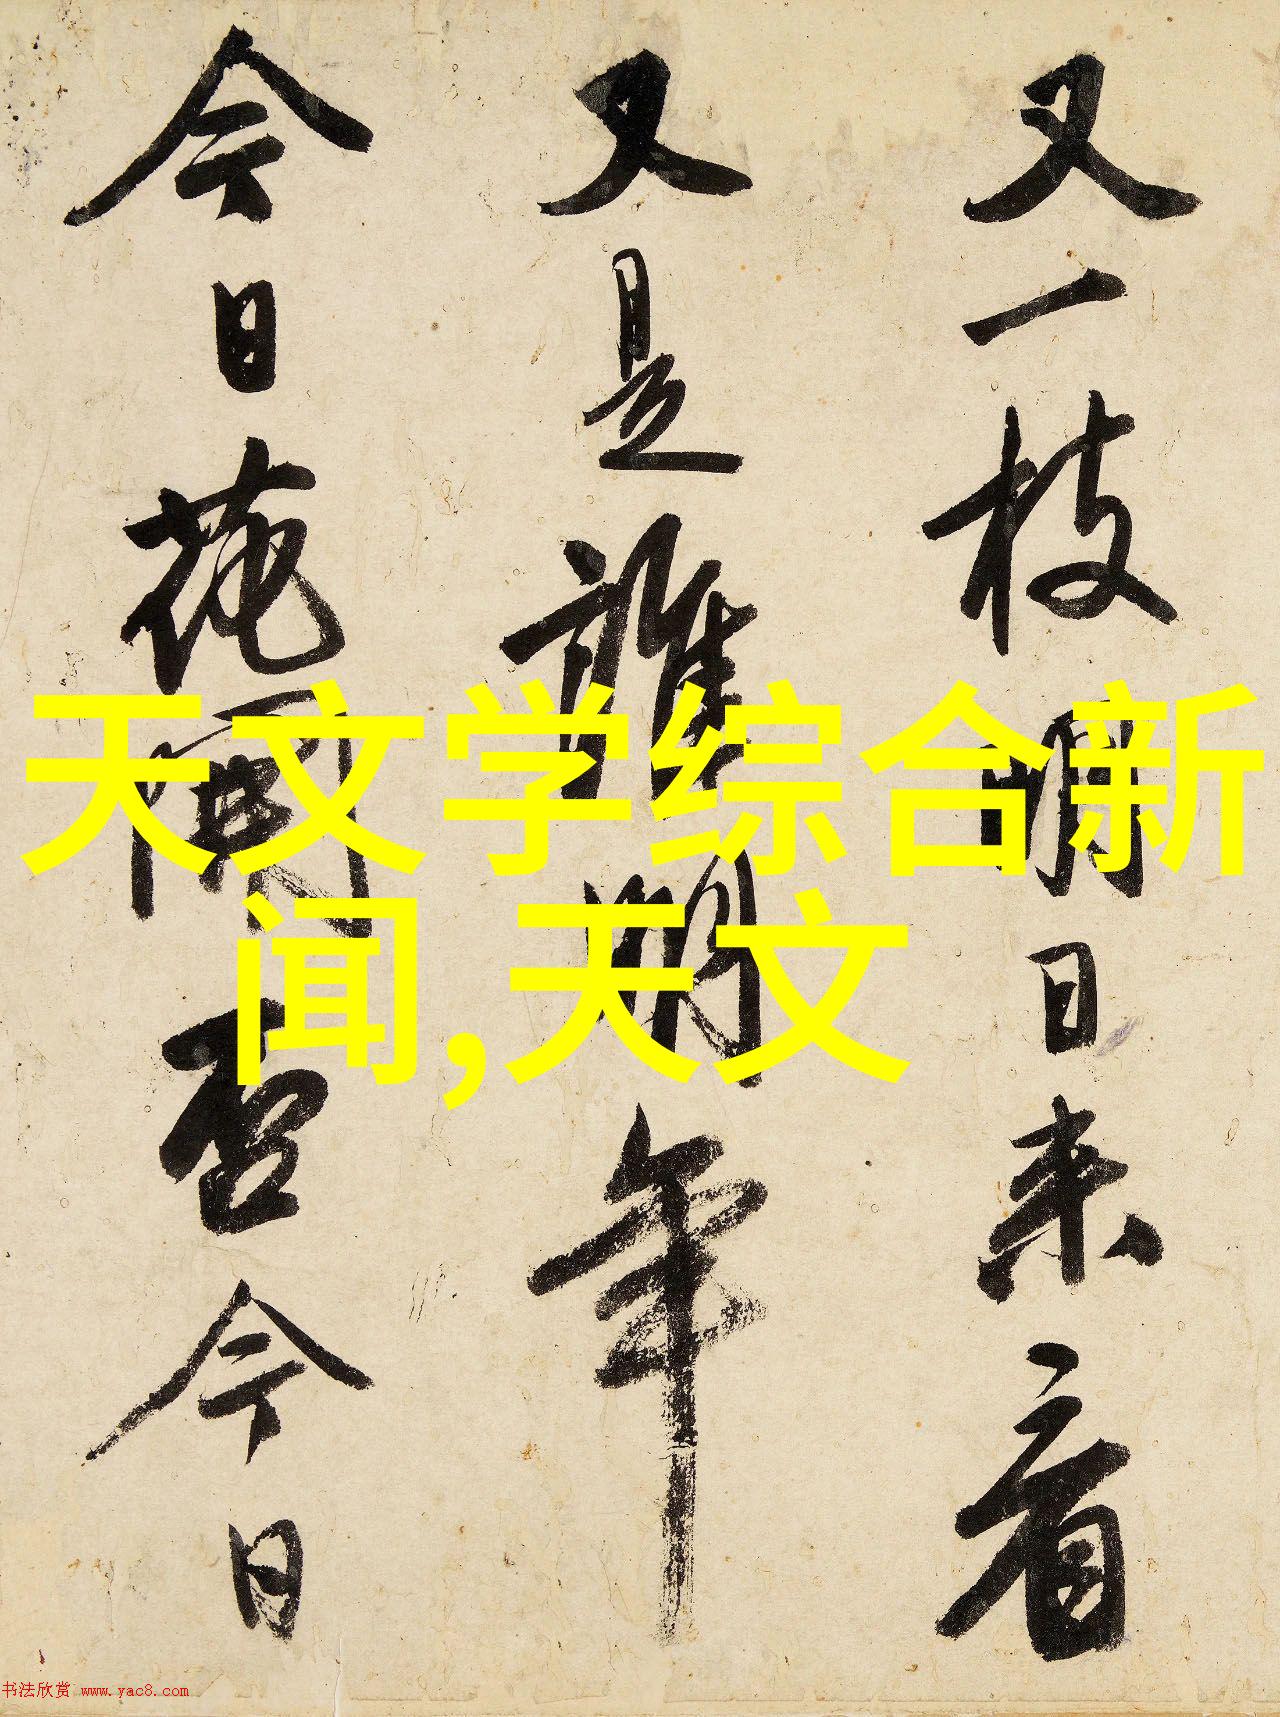 又一枝明日来看
又是誰明年
今日花開否今日
天文学综合新
闻,天文
书法欣赏 www.yac8.com